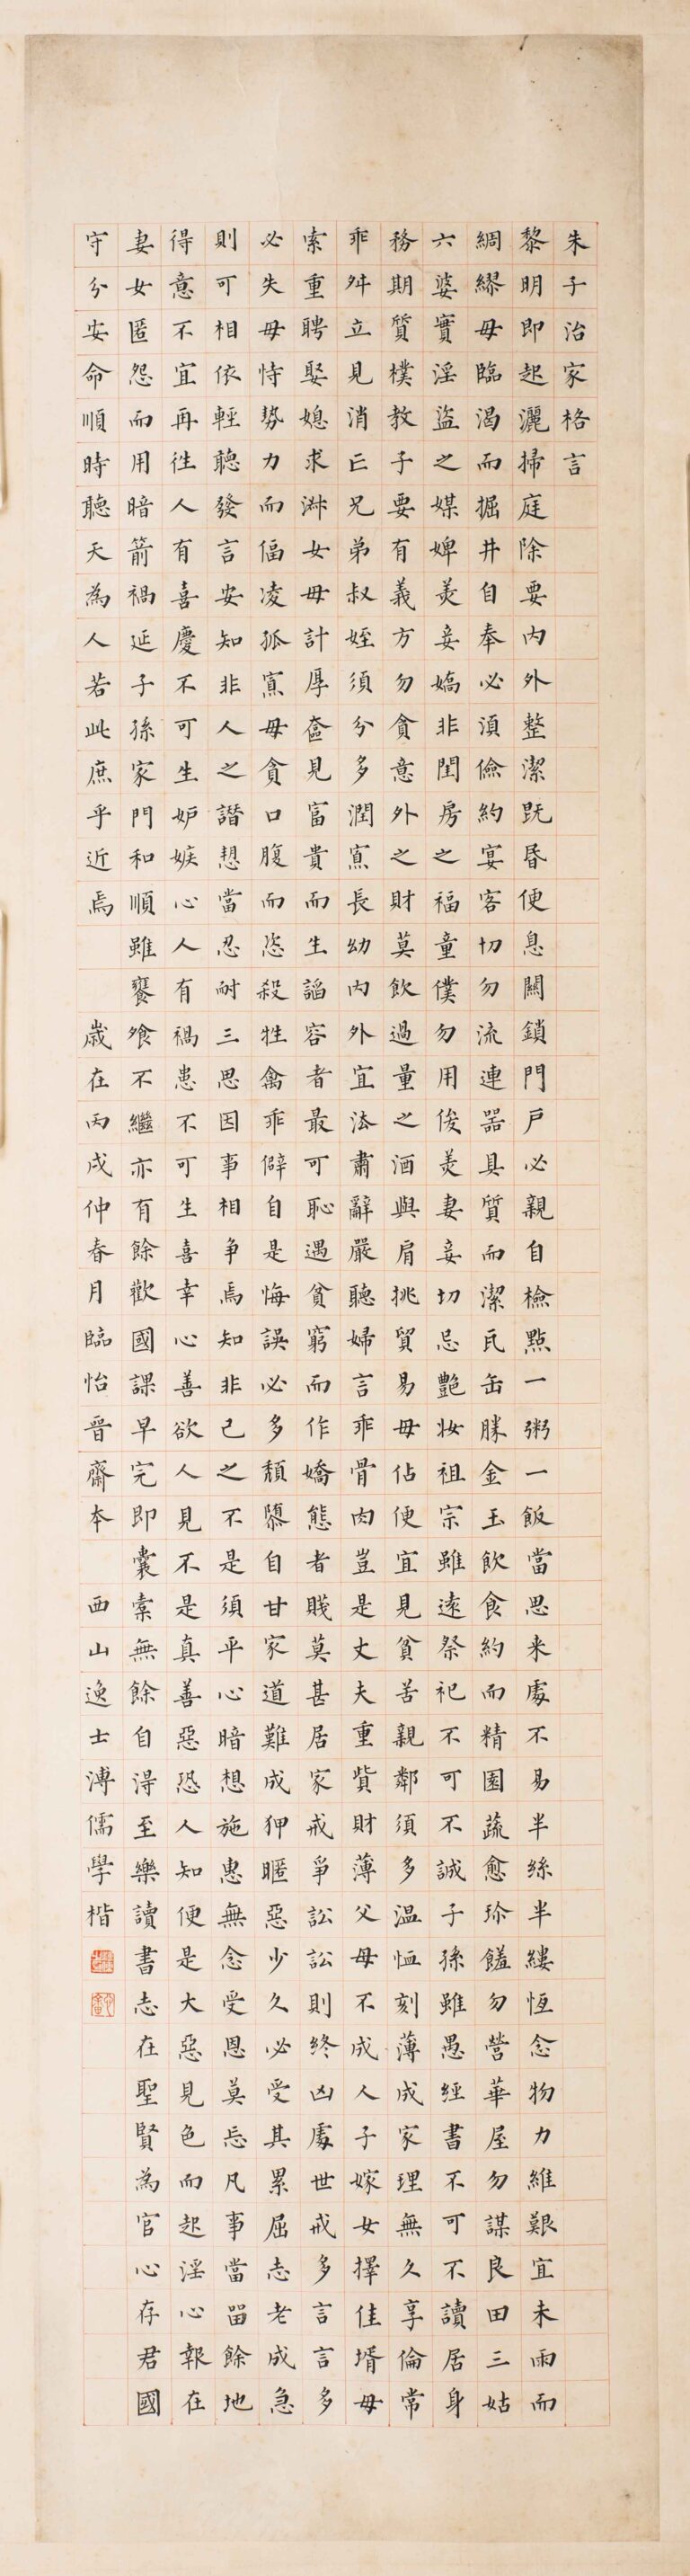 朱子治家格言
黎明即起灑掃庭除要內外整潔既昏便息關鎖門戶必親自檢點一粥一飯當思来處不易半絲半縷恆念物力維艱宜未雨而
綢繆毋臨渴而掘井自奉必須儉約宴客切勿流連器具質而潔瓦缶勝金玉飲食約而精園蔬愈珍饈勿營華屋勿謀良田三姑
六婆實淫盜之媒婢美妾嬌非閨房之福童僕勿用俊美妻妾切忌艷妝祖宗雖遠祭祀不可不誠子孫雖愚經書不可不讀居身
務期質樸教子要有義方勿貪意外之財莫飲過量之酒與肩挑貿易毋佔便宜見貧苦親鄰須多溫恤刻薄成家理無久享倫常
乖舛立見消亡兄弟叔姪須分多潤寡長幼內外宜法肅辭嚴聽婦言乖骨肉豈是丈夫重貲財薄父母不成人子嫁女擇佳壻毋
索重聘娶媳求淑女毋計厚奩見富貴而生諂容者最可恥遇貧窮而作嬌態者賤莫甚居家戒爭訟訟則終凶處世戒多言言多
必失毋恃勢力而偪凌孤寡毋貪口腹而恣殺牲禽乖僻自是悔誤必多頹隳自甘家道難成狎暱惡少久必受其累屈志老成急
則可相依輕聽發言安知非人之譖愬當忍耐三思因事相爭焉知非己之不是須平心暗想施惠無念受恩莫忘凡事當留餘地
得意不宜再往人有喜慶不可生妒嫉心人有禍患不可生喜幸心善欲人見不是真善惡恐人知便是大惡見色而起淫心報在
妻女匿怨而用暗箭禍延子孫家門和順雖饔飧不繼亦有餘歡國課早完即囊橐無餘自得至樂讀書志在聖賢為官心存君國
守分安命順時聽天為人若此庶乎近焉 歲在丙戌仲春月臨怡晉齋本 西山逸士溥儒學楷